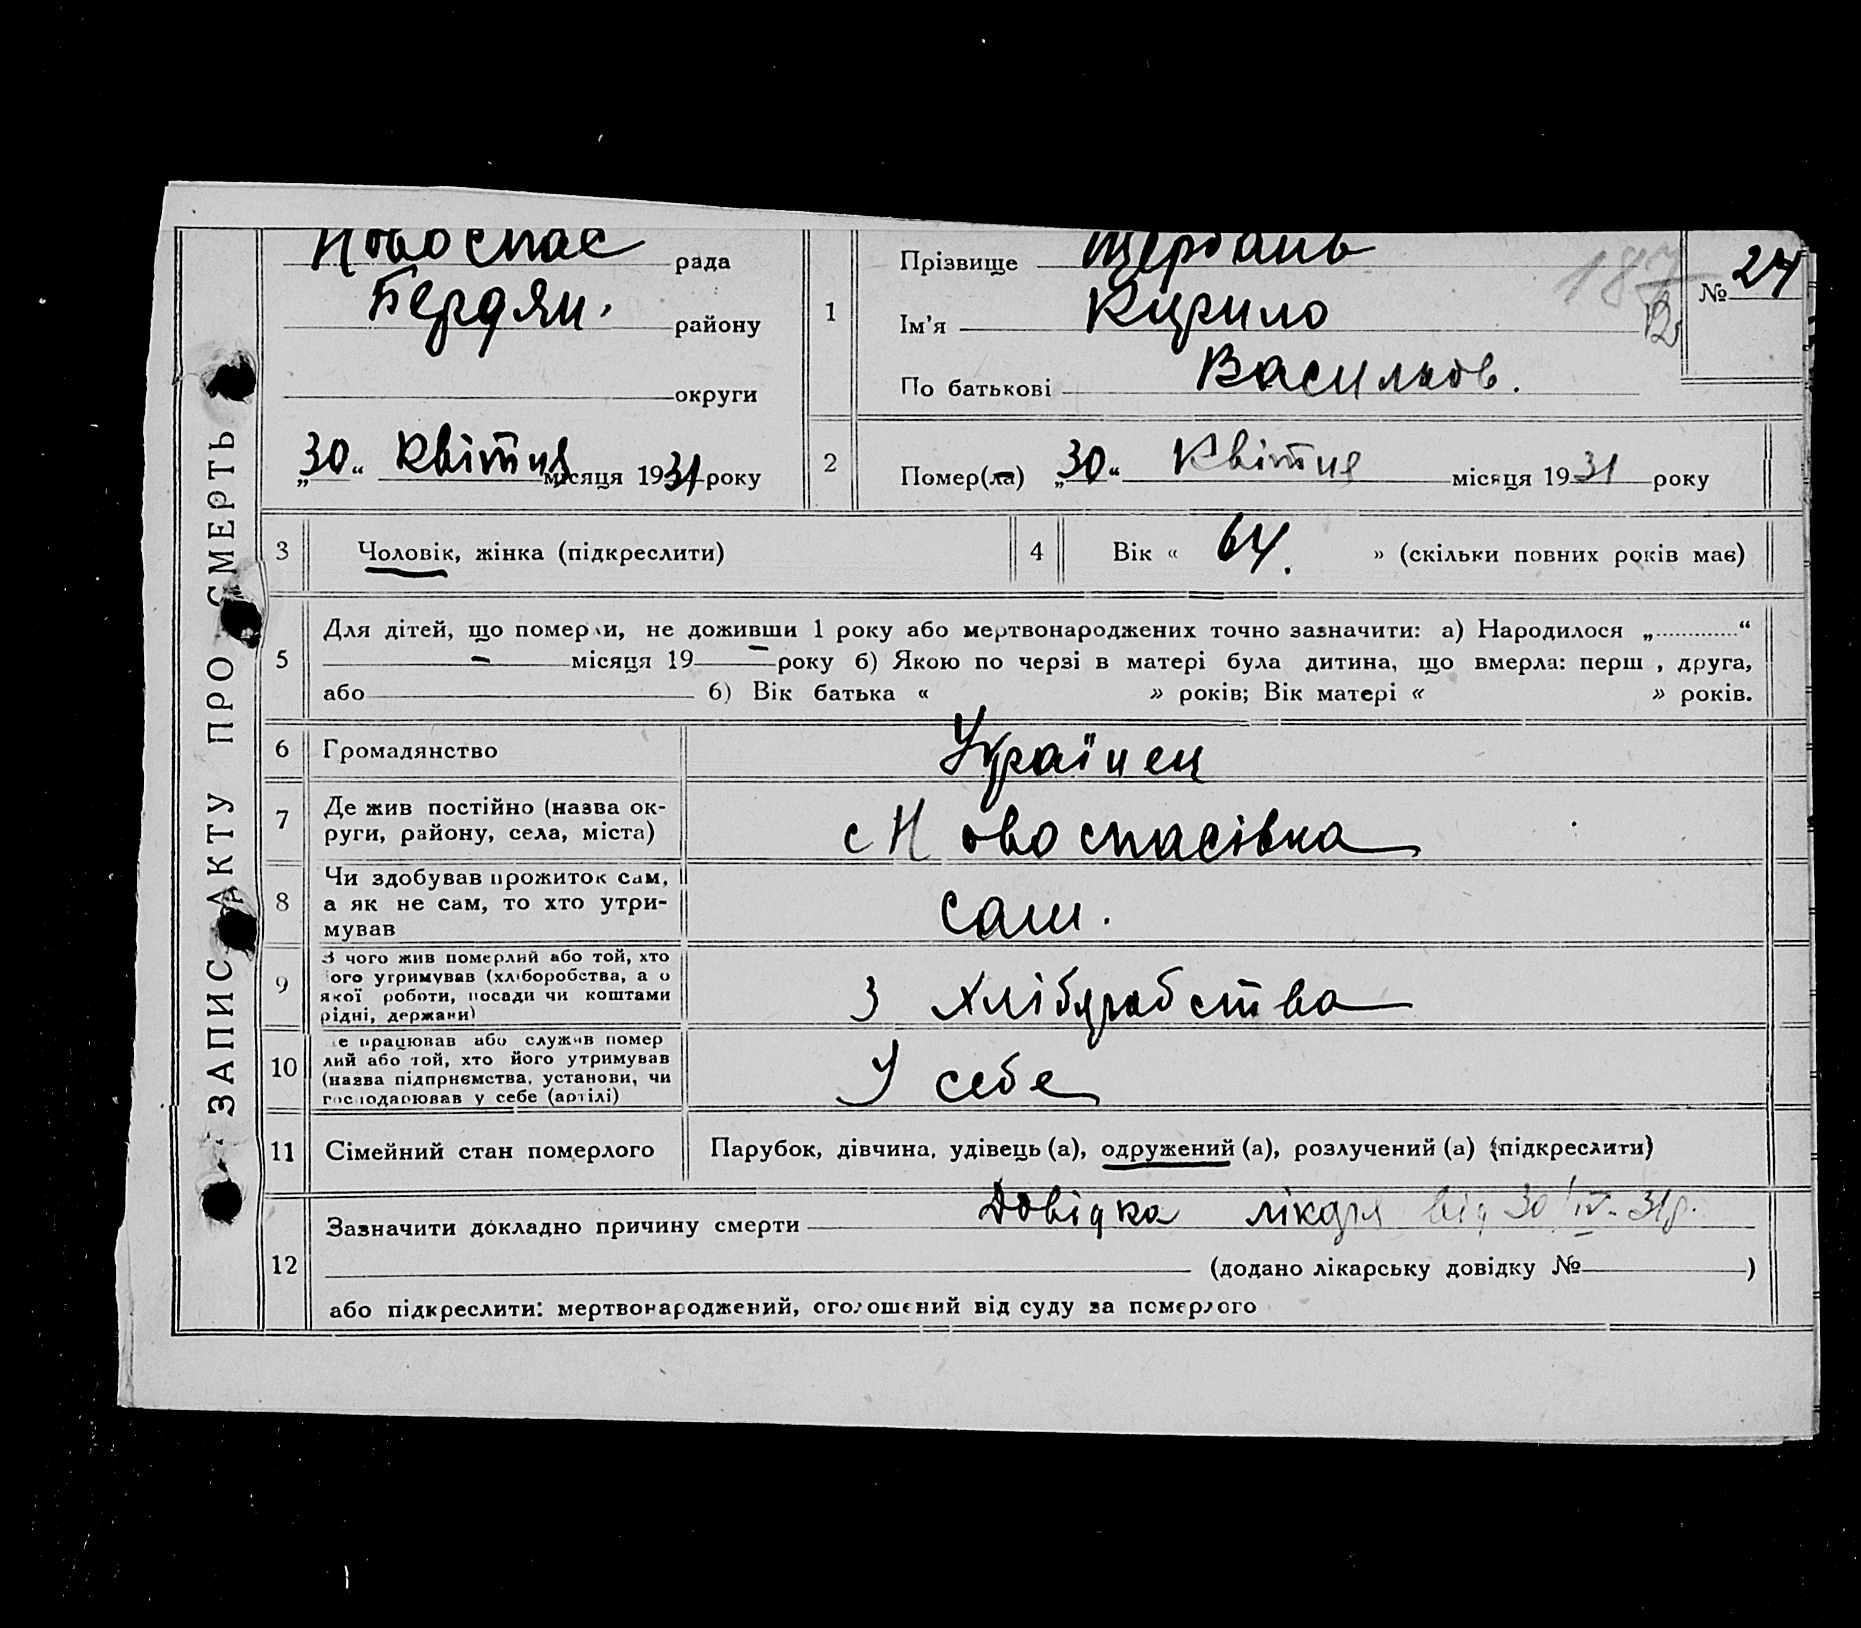 ЗАПИС АКТУ ПРО СМЕРТЬ
Новоспас рада
Бердян. району
округи
„30“ Квітня місяця 1931 року
1
Прізвище Щербань
Ім’я Кирило
По батькові Васильов.
187
№ 24
2
Помер(ла) „30“ Квітня місяця 1931 року
3 Чоловік, жінка (підкреслити)
4 Вік « 64. » (скільки повних років має)
5
Для дітей, що померли, не доживши 1 року або мертвонароджених точно зазначити: а) Народилося „.............“
— місяця 19 — року б) Якою по черзі в матері була дитина, що вмерла: перш , друга,
або б) Вік батька « » років; Вік матері « » років.
6 Громадянство Українец
7 Де жив постійно (назва ок-
руги, району, села, міста)
с Новоспасівка
8 Чи здобував прожиток сам,
а як не сам, то хто утри-
мував
сам.
9 З чого жив померлий або той, хто
ого утримував (хліборобства, а о
якої роботи, посади чи коштами
рідні, держави)
З хліборобства
10 е працював або служив помер
лий або той, хто його утримував
(назва підприємства, установи, чи
господарював у себе (артілі)
У себе
11 Сімейний стан померлого
Парубок, дівчина, удівець (а), одружений (а), розлучений (а) (підкреслити)
12
Зазначити докладно причину смерти Довідка лікаря від 30/IV-31р.
(додано лікарську довідку № )
або підкреслити: мертвонароджений, оголошений від суду за померлого